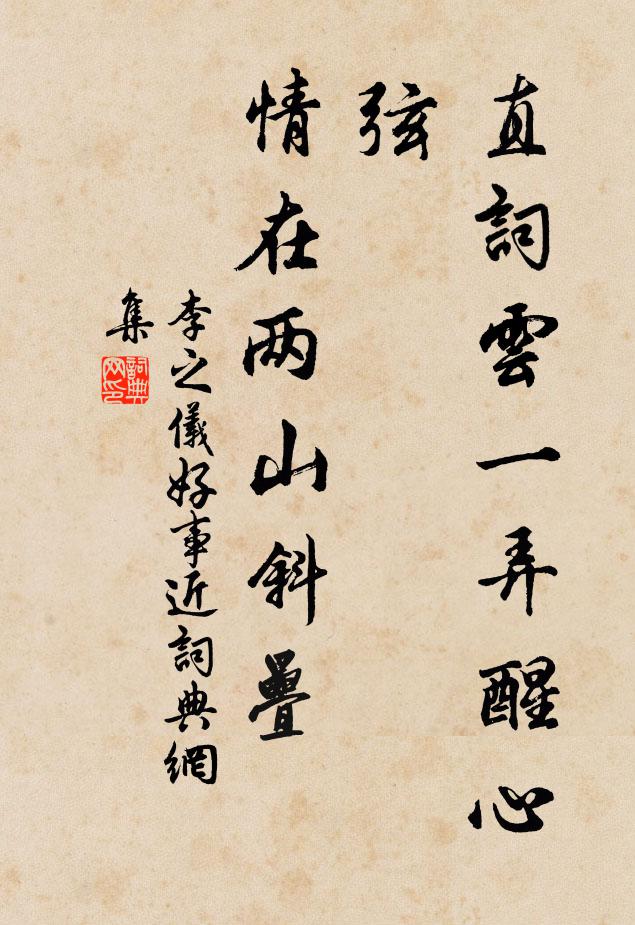 直詞雲一弄醒心
弦
情在两山斜疊
李之儀好事近詞典網
集
詞典网印